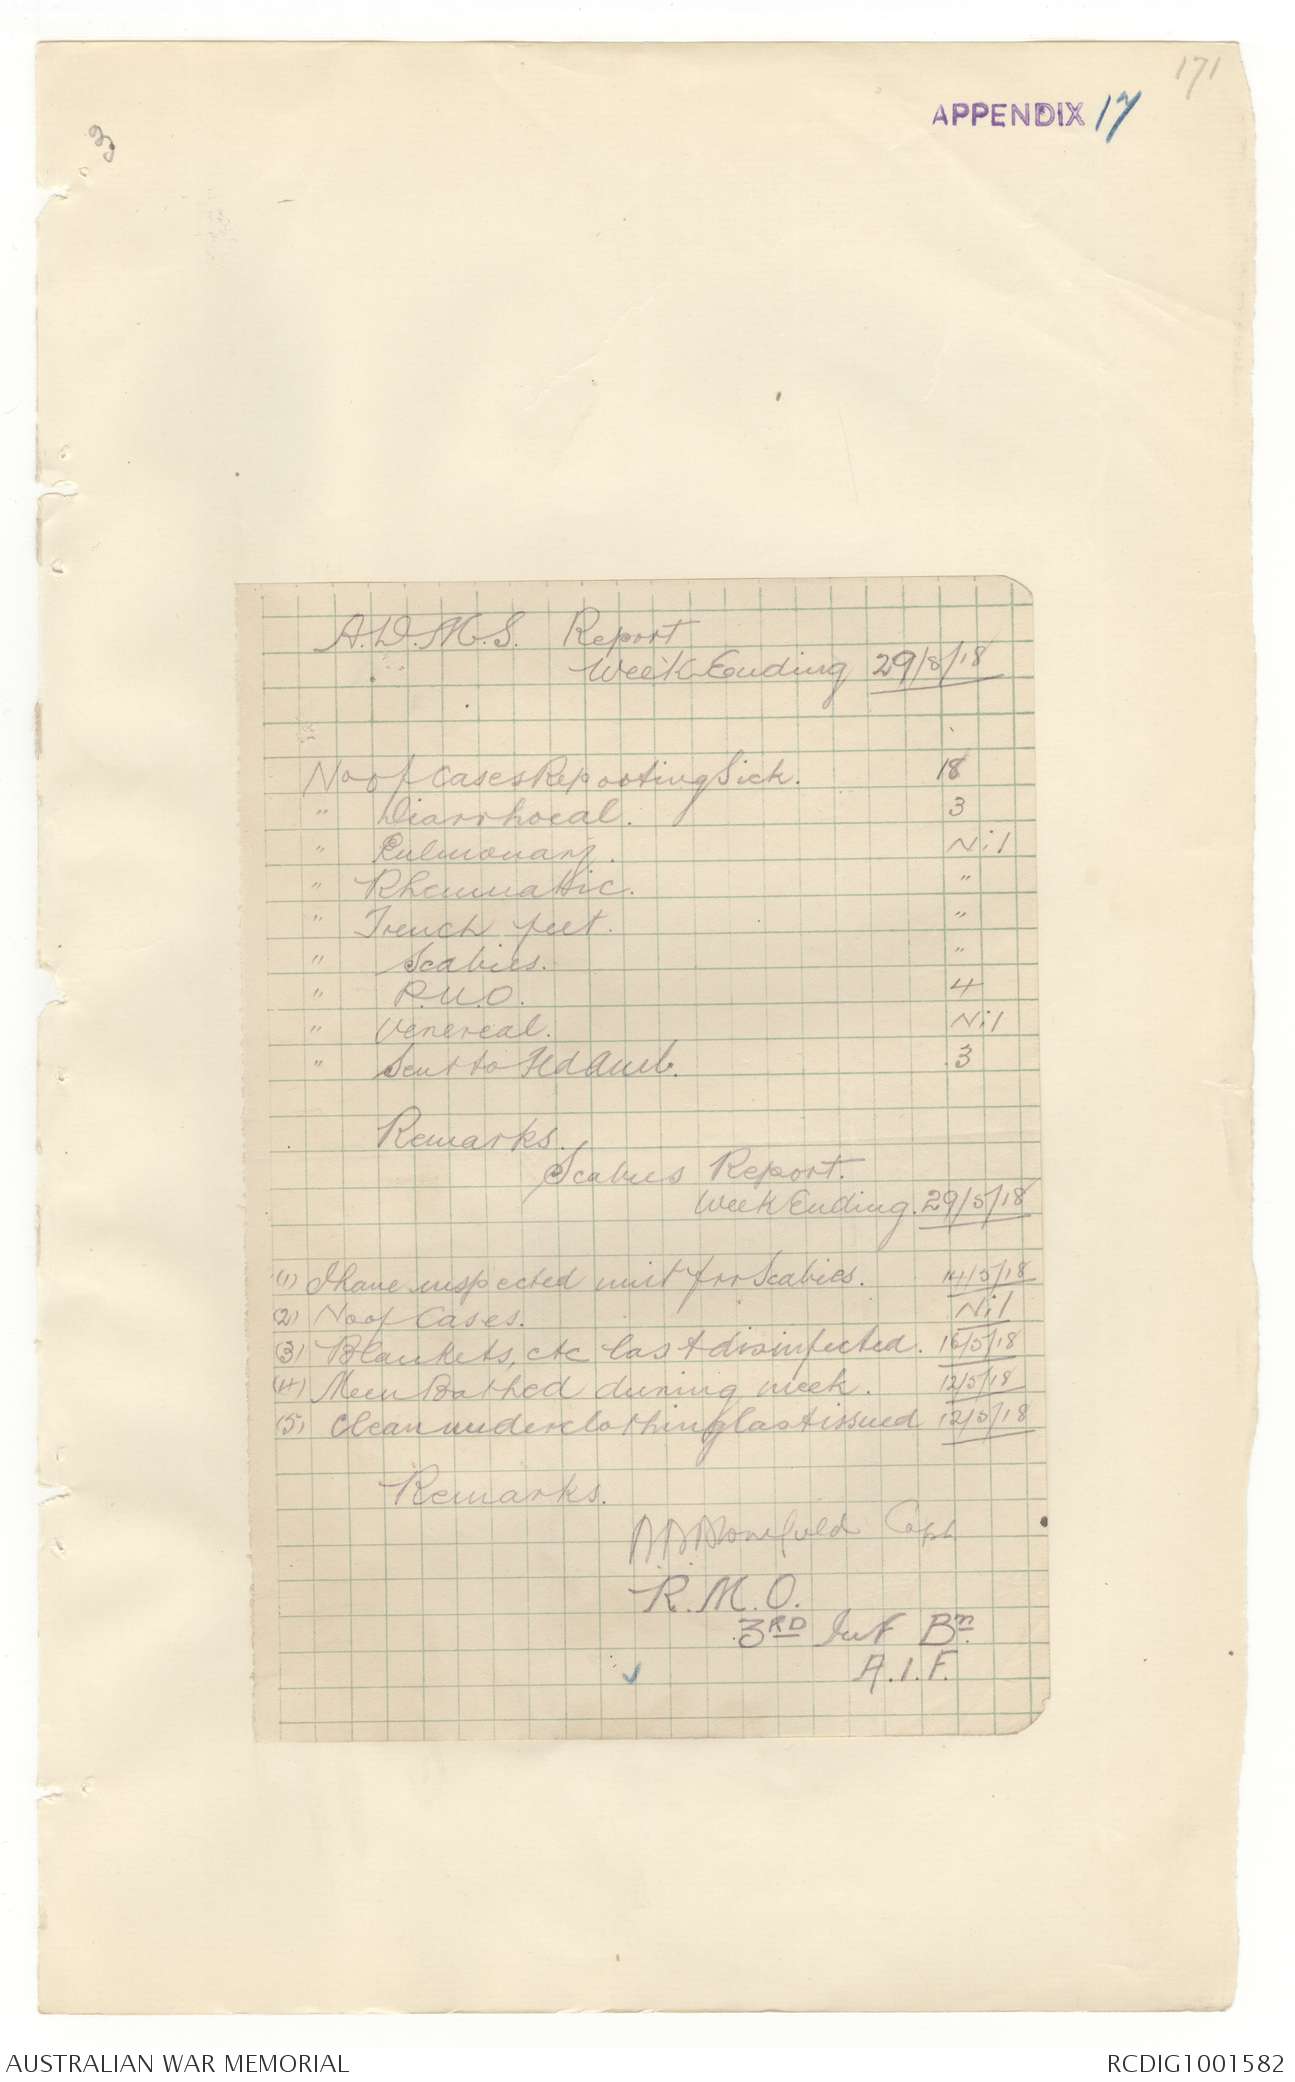 171
APPENDIX 17
3
A.D.M.S. Report
Week Ending 29/5/18
No of Cases Reporting Sick. 18
" Diarrhoeal. 3
" Pulmonary. Nil
" Rheumattic. "
" Trench feet. "
" Scabies. "
" P.U.O. 4
" Venereal. Nil
" Sent to Fld Amb. 3
Remarks.
Scabies Report.
Week Ending. 29/5/18
(1) I have inspected unit for Scabies. 14/5/18
(2) No of Cases. Nil
(3) Blankets, etc last disinfected. 16/5/18
(4) Men Bathed during week. 12/5/18
(5) Clean underclothing last issued 12/5/18
Remarks.
Capt
R.M.O.
3RD Inf Bn.
A.I.F.
AUSTRALIAN WAR MEMORIAL
RCDIG1001582